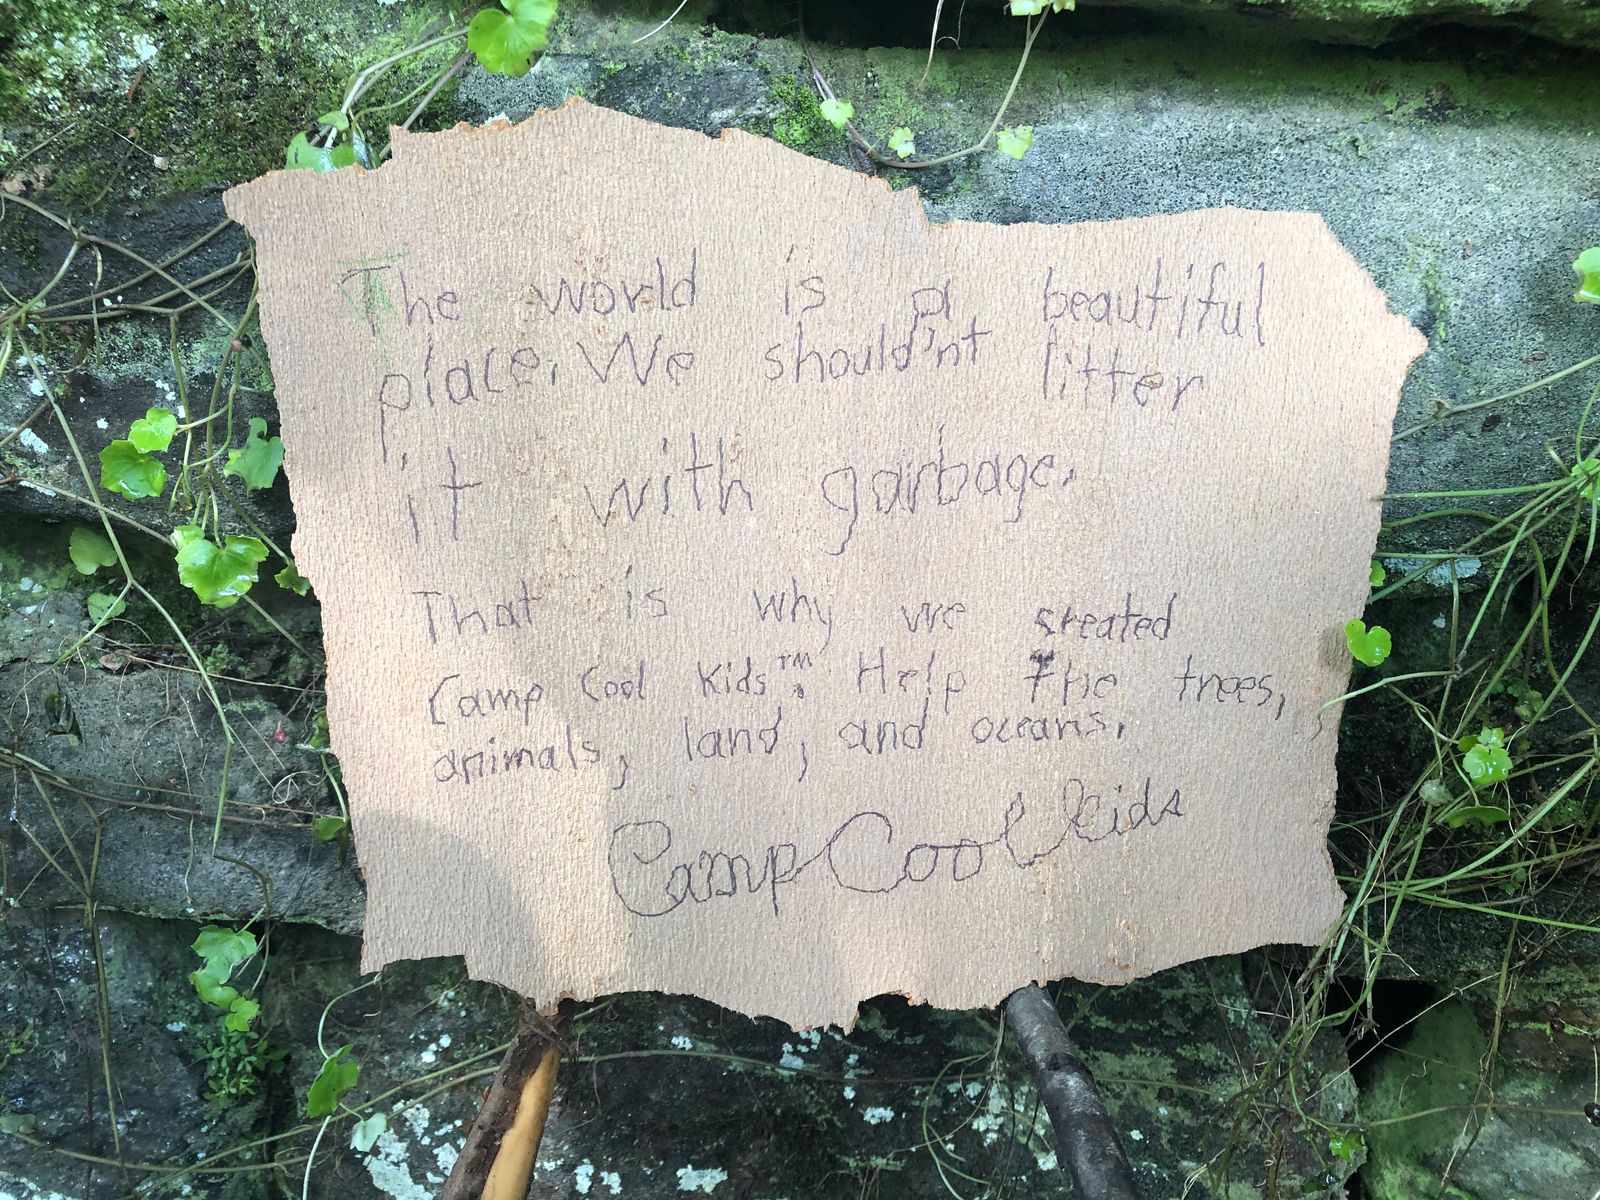 The world is a beautiful
place. We should'nt litter
it with garbage.
That is why we created
Camp Cool Kids™. Help the trees,
animals, land, and oceans.
Camp Cool Kids